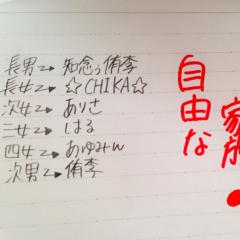 自由な
家族
長男→知念ぅ侑李
長女→☆CHIKA☆
次女→ありさ
三女→はる
四女→あゆみん
次男→侑李